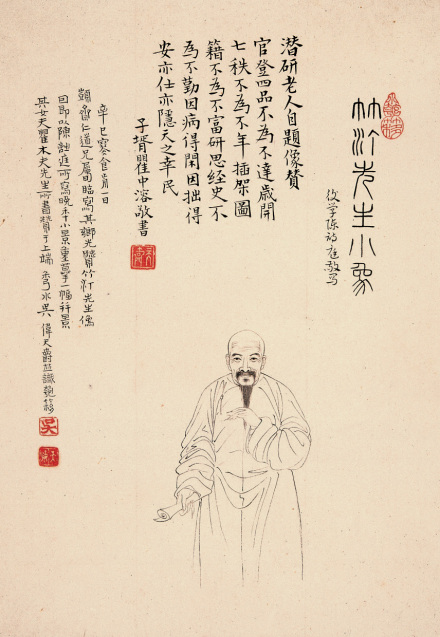 竹汀先生小象
後学陳詩庭敬写
潜研老人自題像贊
官登四品不為不達歲開
七秩不為不年插架圖
籍不為不富研思經史不
為不勤因病得閑因拙得
安亦仕亦隱天之幸民
子壻瞿中溶敬書
辛巳寒食前一日
仁道兄屬臨寫其鄉先賢竹汀先生像
因即以陳詩庭所寫晚年小景重摹一幀并景
其女夫瞿木夫先生所書贊于上端 秀水吳
吳